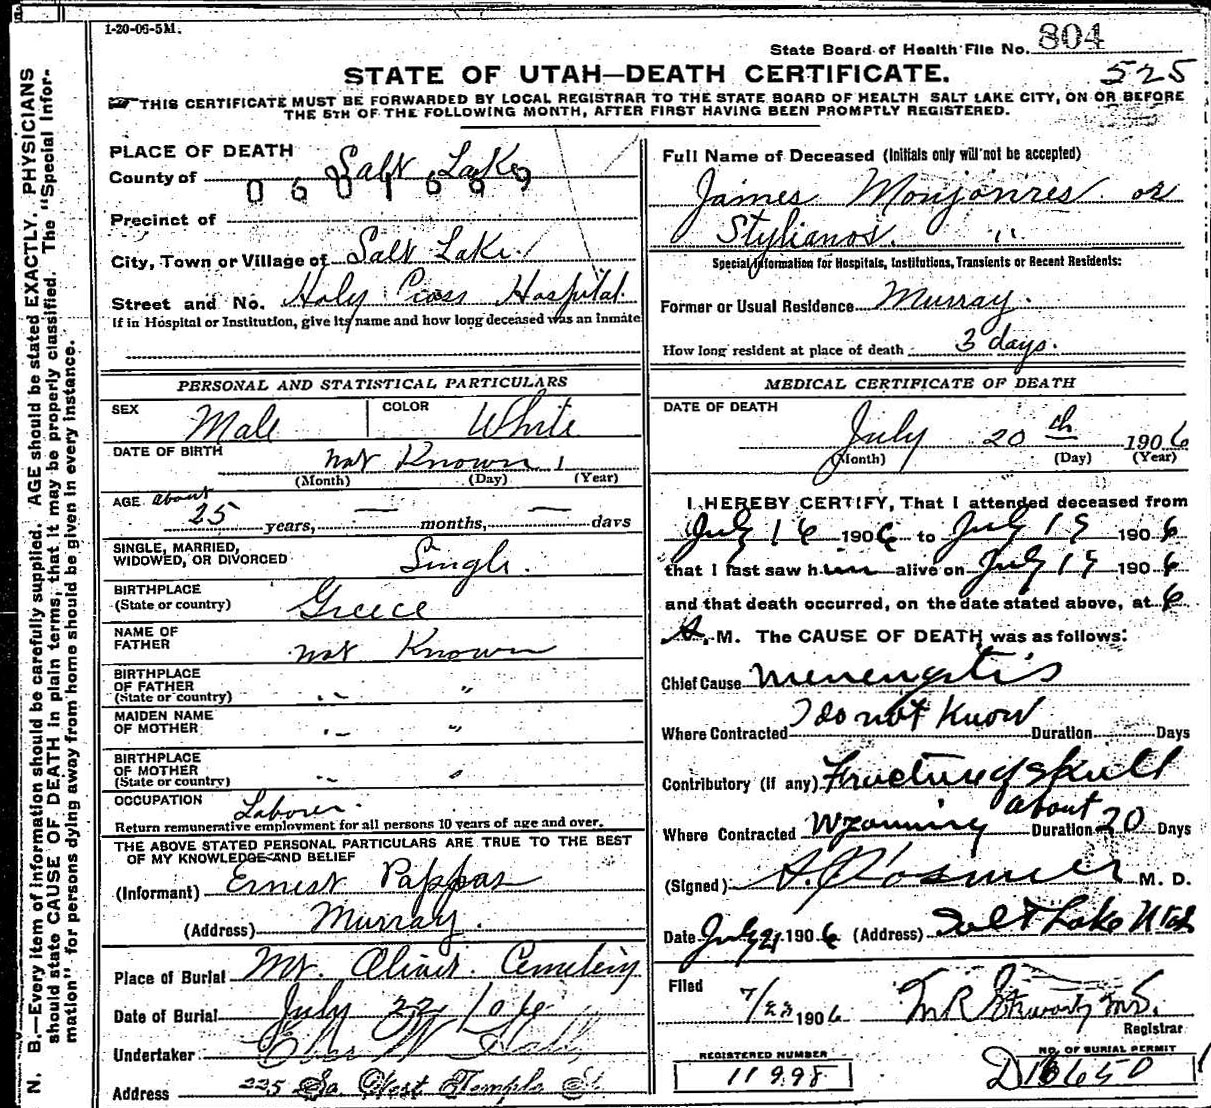 1-20-06-5M.
State Board of Health File No. 804
525
STATE OF UTAH—DEATH CERTIFICATE.
THIS CERTIFICATE MUST BE FORWARDED BY LOCAL REGISTRAR TO THE STATE BOARD OF HEALTH SALT LAKE CITY, ON OR BEFORE
THE 5TH OF THE FOLLOWING MONTH, AFTER FIRST HAVING BEEN PROMPTLY REGISTERED.
N. B.—Every item of information should be carefully supplied. AGE should be stated EXACTLY. PHYSICIANS
should state CAUSE OF DEATH in plain terms, that it may be properly classified. The "Special Infor-
mation" for persons dying away from home should be given in every instance.
PLACE OF DEATH
County of Salt Lake
0601699
Precinct of
City, Town or Village of Salt Lake
Street and No. Holy Cross Hospital
If in Hospital or Institution, give its name and how long deceased was an inmate
PERSONAL AND STATISTICAL PARTICULARS
SEX Male COLOR White
DATE OF BIRTH not Known 1
(Month) (Day) (Year)
AGE about 25 years, — months, — days
SINGLE, MARRIED,
WIDOWED, OR DIVORCED Single.
BIRTHPLACE
(State or country) Greece
NAME OF
FATHER not Known
BIRTHPLACE
OF FATHER
(State or country) " "
MAIDEN NAME
OF MOTHER " "
BIRTHPLACE
OF MOTHER
(State or country) " "
OCCUPATION Laborer.
Return remunerative employment for all persons 10 years of age and over.
THE ABOVE STATED PERSONAL PARTICULARS ARE TRUE TO THE BEST
OF MY KNOWLEDGE AND BELIEF
(Informant) Ernest Pappas
(Address) Murray.
Place of Burial Mt. Olivet. Cemetery
Date of Burial July 22 1906
Undertaker Hall
Address 225 So. West Temple St
Full Name of Deceased (Initials only will not be accepted)
James Monjonres or
Stylianos. "
Special Information for Hospitals, Institutions, Transients or Recent Residents:
Former or Usual Residence Murray.
How long resident at place of death 3 days.
MEDICAL CERTIFICATE OF DEATH
DATE OF DEATH
July 20th 1906
(Month) (Day) (Year)
I HEREBY CERTIFY, That I attended deceased from
July 16 1906 to July 19 1906
that I last saw him alive on July 19 1906
and that death occurred, on the date stated above, at 6
A. M. The CAUSE OF DEATH was as follows:
Chief Cause Menengitis
Where Contracted I do not Know Duration Days
Contributory (if any) Fracture of skull
Where Contracted Wyoming Duration about 20 Days
(Signed) M. D.
Date July 21 1906 (Address) Salt Lake Utah
Filed
7/23 1906 M.D.
Registrar
REGISTERED NUMBER
11998
NO. OF BURIAL PERMIT